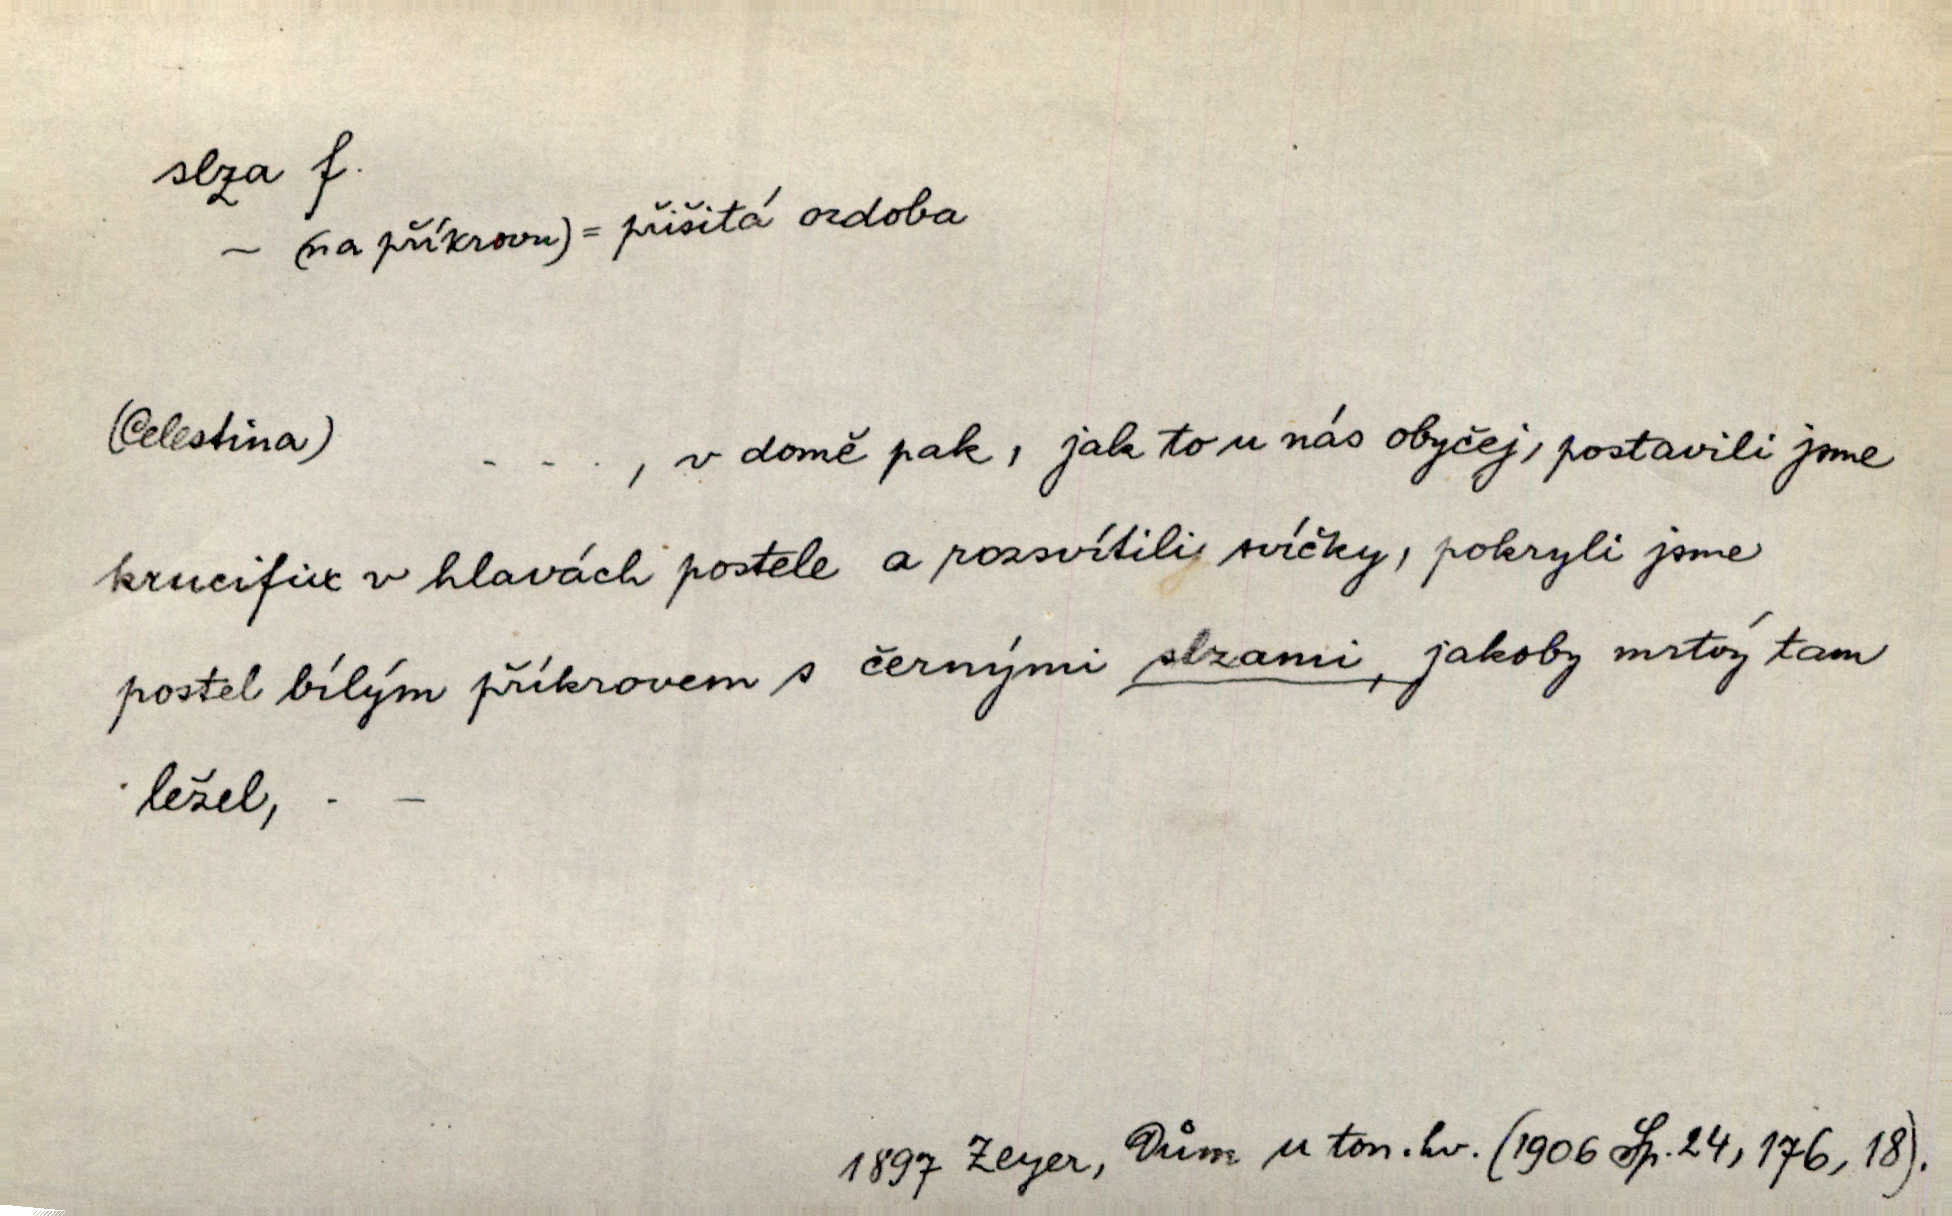 slza f.
~ (na příkrovu) = přišitá ozdoba
(Celestina) - - . , v domě pak, jak to u nás obyčej, postavili jsme
krucifix v hlavách postele a rozsvítili svíčky, pokryli jsme
postel bílým příkrovem s černými slzami, jakoby mrtvý tam
ležel, . -
1897 Zeyer, Dům u ton. hv. (1906 Sp. 24, 176, 18).